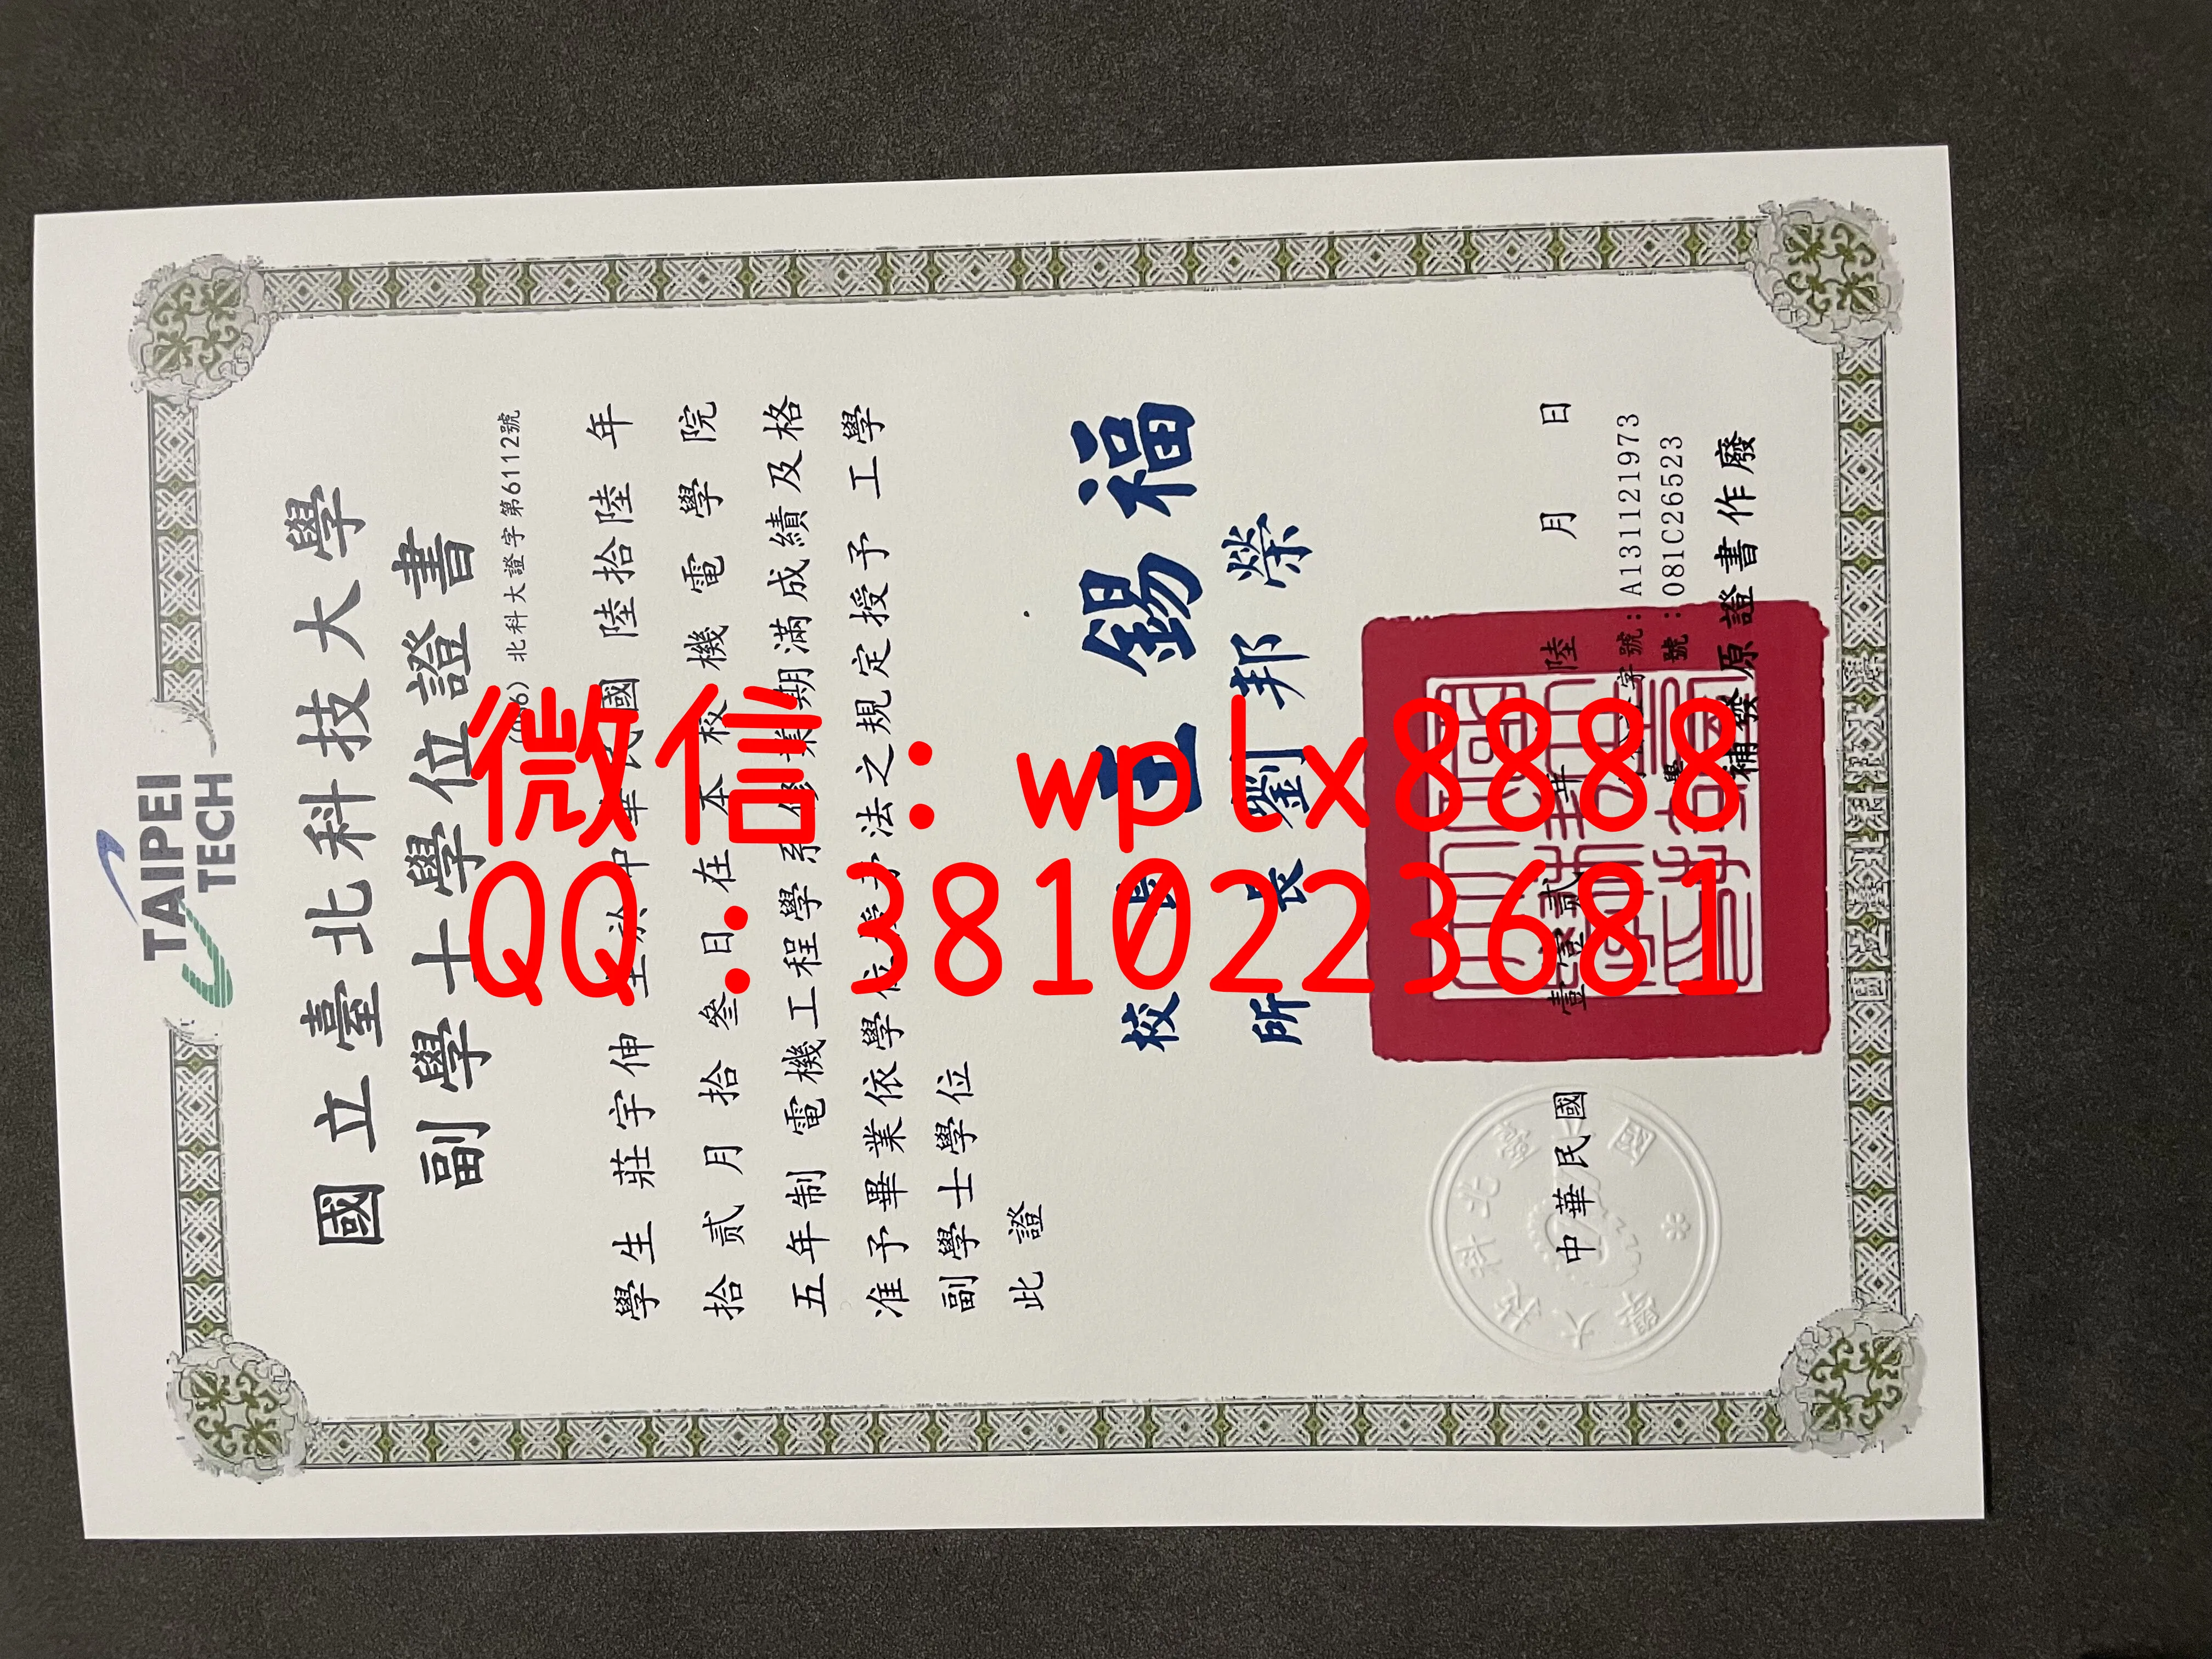 TAIPEI
TECH
國立臺北科技大學
副學士學位證書
北科大證字第61112號
學生 莊宇伸 國 陸拾陸 年
拾貳月拾叁日在本校 機電學院
五年制 電機工程學系修業期滿成績及格
准予畢業依學位授予法之規定授予 工學
副學士學位
此證
校長 王錫福
所長 劉邦榮
中華民國 陸 月 日
號：A131121973
學 號：081C26523
補發原證書作廢
微信：wplx8888
QQ：3810223681